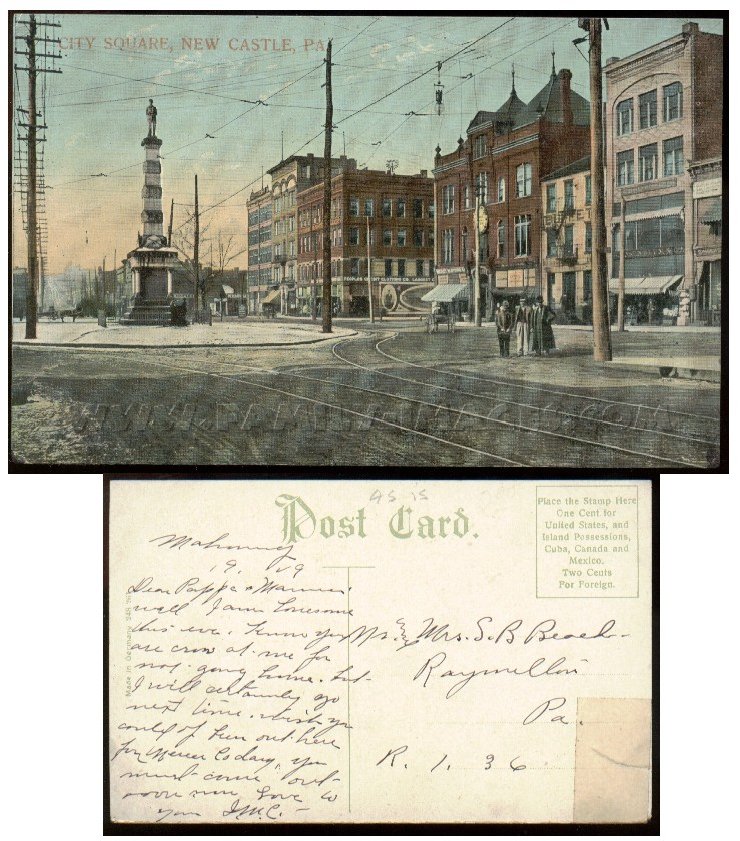 CITY SQUARE, NEW CASTLE, PA.
PEOPLES CREDIT CLOTHING CO. LARGEST C
WWW.PAMILY-IMAGES.COM
as is
Post Card.
Place the Stamp Here
One Cent for
United States, and
Island Possessions,
Cuba, Canada and
Mexico.
Two Cents
For Foreign.
Made in Germany
Mahoning
19. 09
Dear Pappa & Mamma.
well I am lonesome
this eve. I know you
are cross at me for
not going home. but
I will certainly go
next time. wish you
could of been out here
for Mercer Co day, you
must come out
soon now, love to
you I.M.C.
Mr. & Mrs. S. B. Beach
Raymilton
Pa.
R. 1. 36